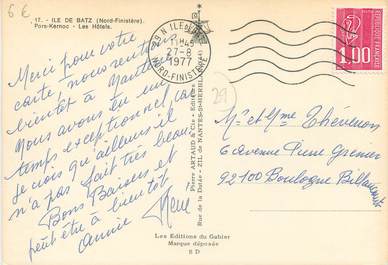 6 €
17. - ILE DE BATZ (Nord-Finistère).
Pors-Kernoc - Les Hôtels.
Merci pour votre
carte, nous rentrons
bientôt à Nantes
Nous avons eu un
temps exceptionnel, car
je crois qu'ailleurs il
n'a pas fait très beau
Bons Baisers et
peut être à bientôt
Annie
29 N ILE DE
11H45
27-8
1977
NORD-FINISTERE
1,00
Pierre ARTAUD & Cie - Editeurs
Rue de la Dutée - ZIL de NANTES-St-HERBLAIN
29
Mr et Mme Thévenon
6 avenue Pierre Grenier
92100 Boulogne Billancourt
Les Editions du Gabier
Marque déposée